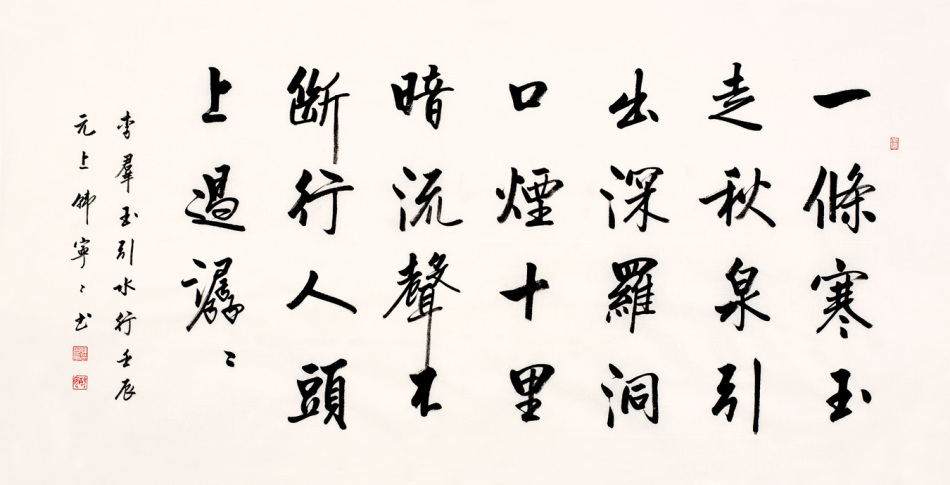 一條寒玉
走秋泉引
出深羅洞
口煙十里
暗流聲不
斷行人頭
上過潺〻
李羣玉引水行壬辰
元上韓寧〻书